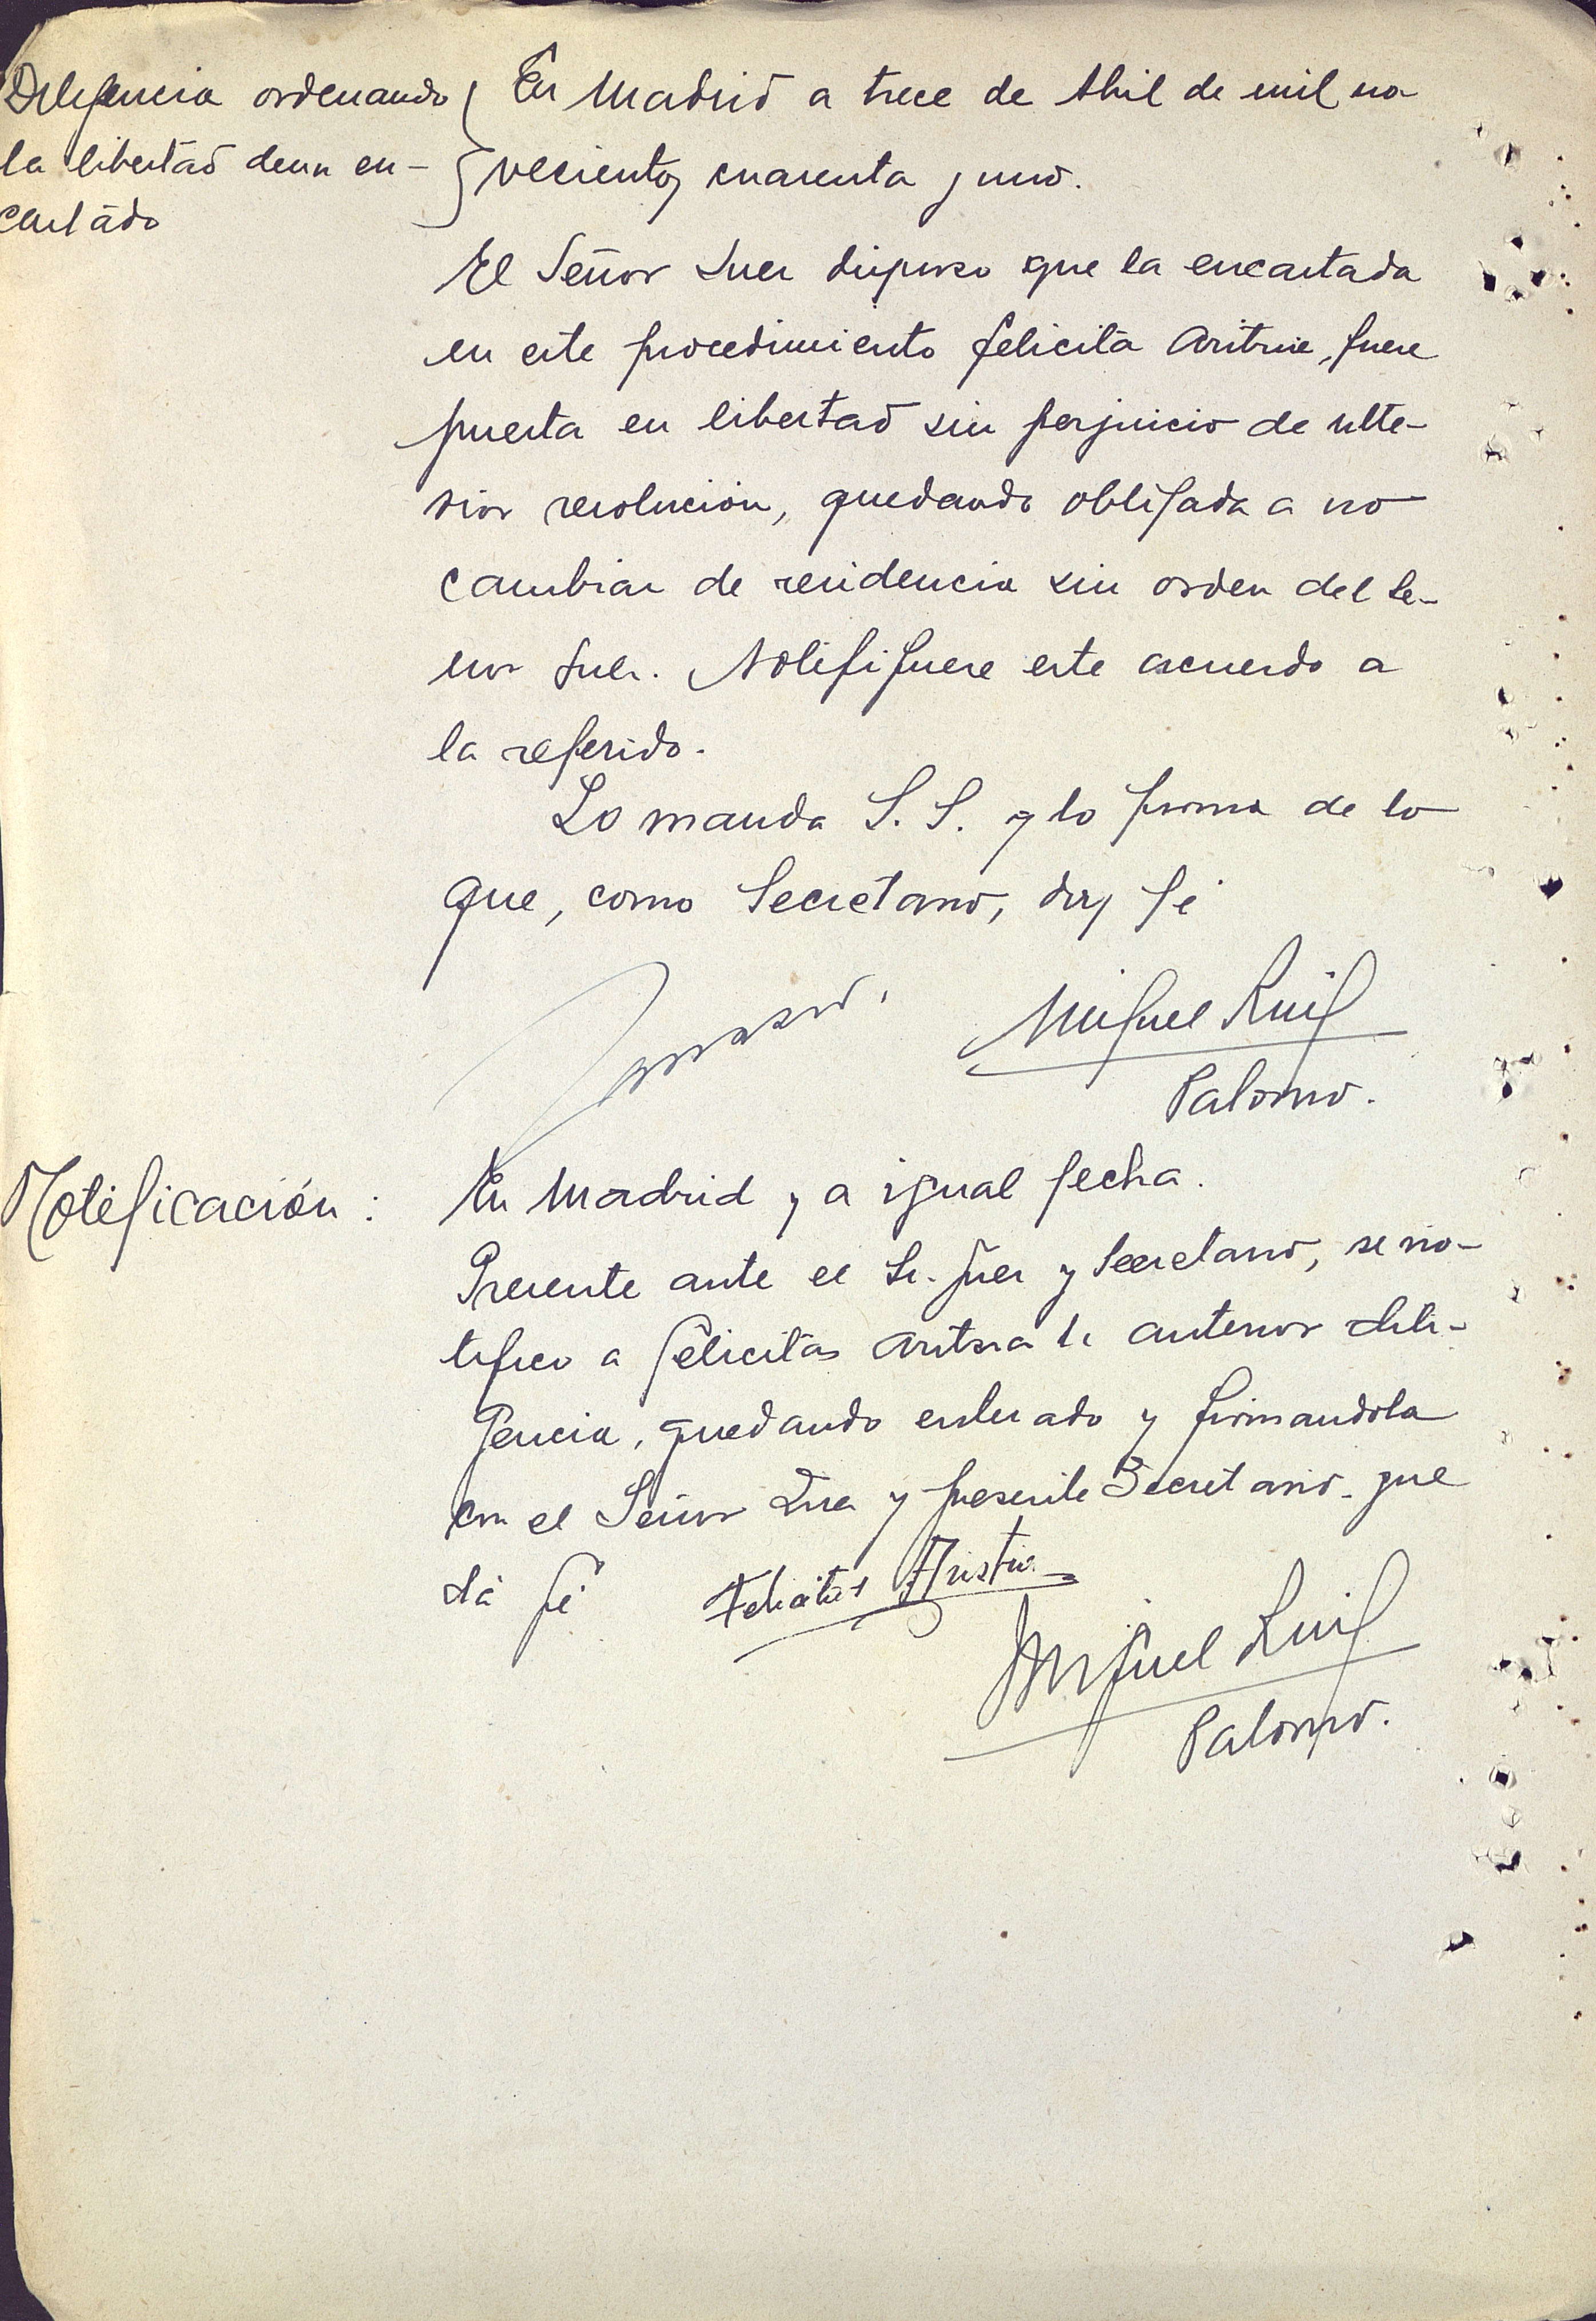 Diligencia ordenando
la libertad de un en-
cartado
En Madrid a trece de Abril de mil no-
vecientos cuarenta y uno.
El Señor Juez dispuso que la encartada
en este procedimiento Felicita fuere
puesta en libertad sin perjuicio de ulte-
rior resolución, quedando obligada a no
cambiar de residencia sin orden del Se-
ñor Juez. Notifíquese este acuerdo a
la referido.
Lo manda S. S. y lo firma de lo
que, como Secretario, doy fé
Miguel Ruiz
Palomo.
Notificación:
En Madrid y a igual fecha.
Presente ante el Sr. Juez y Secretario, se no-
tifico a Felicitas la anterior dili-
gencia, quedando enterado y firmandola
con el Señor Juez y presente Secretario que
dá fé
Felicitas
Miguel Ruiz
Palomo.